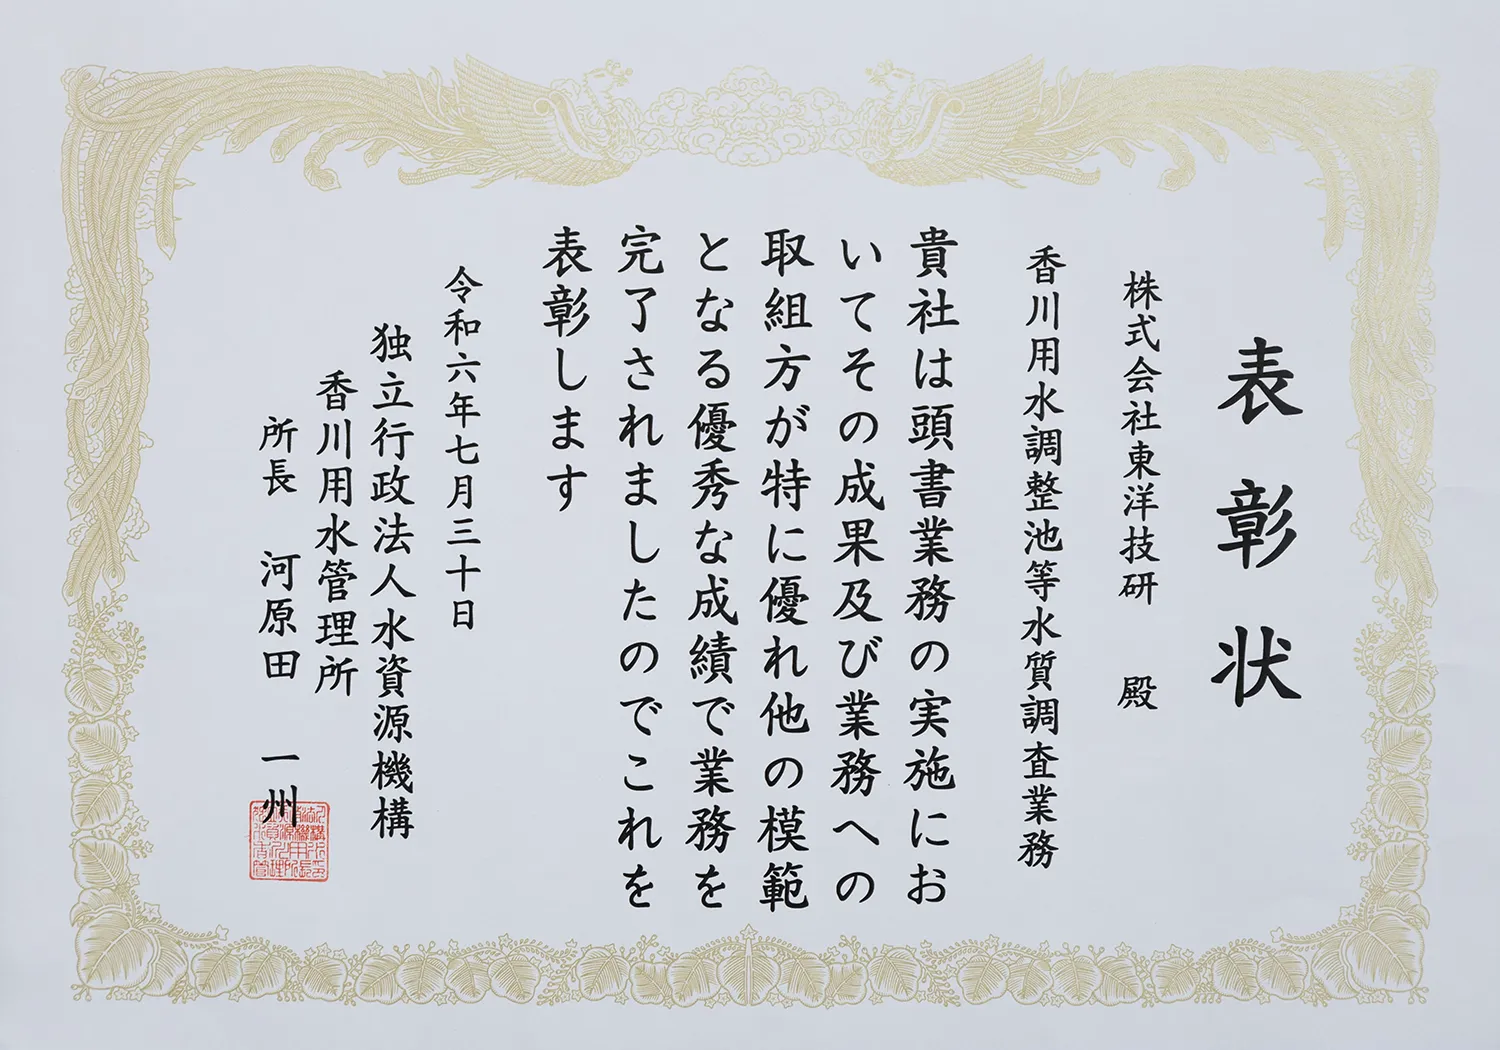 表彰状
株式会社東洋技研 殿
香川用水調整池等水質調査業務
貴社は頭書業務の実施にお
いてその成果及び業務への
取組方が特に優れ他の模範
となる優秀な成績で業務を
完了されましたのでこれを
表彰します
令和六年七月三十日
独立行政法人水資源機構
香川用水管理所
所長 河原田 一州